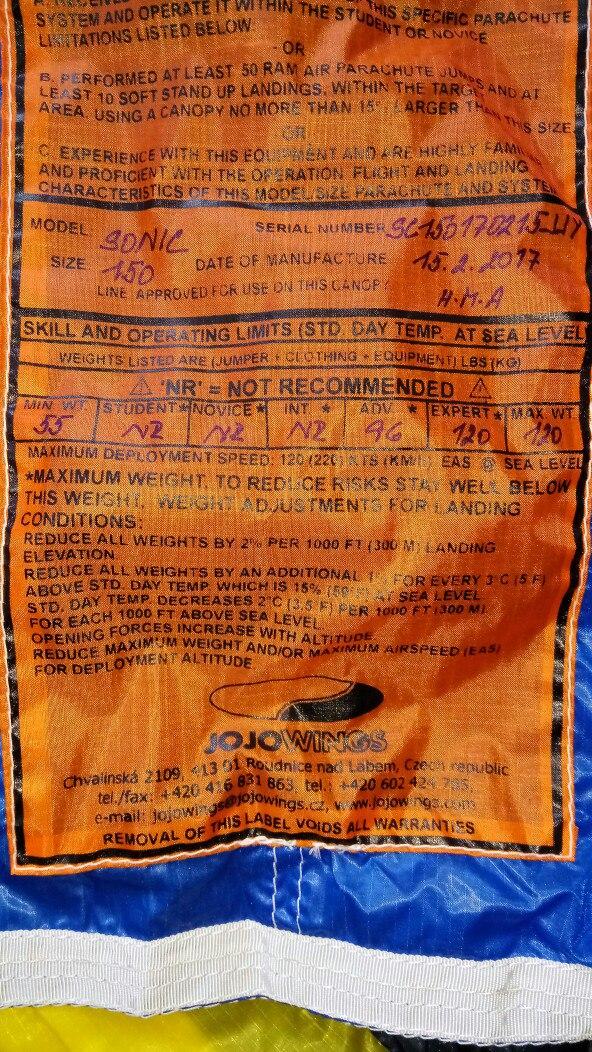 A. RECEIVED THIS SPECIFIC PARACHUTE
SYSTEM AND OPERATE IT WITHIN THE STUDENT OR NOVICE
LIMITATIONS LISTED BELOW.
- OR
B. PERFORMED AT LEAST 50 RAM AIR PARACHUTE JUMPS AND AT
LEAST 10 SOFT STAND UP LANDINGS, WITHIN THE TARGET
AREA. USING A CANOPY NO MORE THAN 15% LARGER THAN THIS SIZE.
OR
C. EXPERIENCE WITH THIS EQUIPMENT AND ARE HIGHLY FAMI
AND PROFICIENT WITH THE OPERATION FLIGHT AND LANDING
CHARACTERISTICS OF THIS MODEL/SIZE PARACHUTE AND SYSTE
MODEL: SONIC SERIAL NUMBER
SIZE: 150 DATE OF MANUFACTURE 15.2.2017
LINE APPROVED FOR USE ON THIS CANOPY H.M.A
SKILL AND OPERATING LIMITS (STD. DAY TEMP. AT SEA LEVEL
WEIGHTS LISTED ARE (JUMPER + CLOTHING + EQUIPMENT) LBS (KG)
⚠ 'NR' = NOT RECOMMENDED ⚠
MIN WT. STUDENT* NOVICE* INT * ADV. * EXPERT* MAX WT
55 NR NR NR 96 120 120
MAXIMUM DEPLOYMENT SPEED: 120 (220) KTS (KM/E) EAS @ SEA LEVEL
*MAXIMUM WEIGHT, TO REDUCE RISKS STAY WELL BELOW
THIS WEIGHT. WEIGHT ADJUSTMENTS FOR LANDING
CONDITIONS:
REDUCE ALL WEIGHTS BY 2% PER 1000 FT (300 M) LANDING
ELEVATION
REDUCE ALL WEIGHTS BY AN ADDITIONAL 1% FOR EVERY 3°C (5 F)
ABOVE STD. DAY TEMP. WHICH IS 15% (59°F) AT SEA LEVEL
STD. DAY TEMP. DECREASES 2°C (3,5 F) PER 1000 FT (300 M)
FOR EACH 1000 FT ABOVE SEA LEVEL.
OPENING FORCES INCREASE WITH ALTITUDE.
REDUCE MAXIMUM WEIGHT AND/OR MAXIMUM AIRSPEED (EAS)
FOR DEPLOYMENT ALTITUDE
JOJOWINGS
Chvalínská 2109, 413 01 Roudnice nad Labem, Czech republic
tel./fax: +420 416 831 863, tel.: +420 602 424 785,
e-mail: jojowings@jojowings.cz, www.jojowings.com
REMOVAL OF THIS LABEL VOIDS ALL WARRANTIES